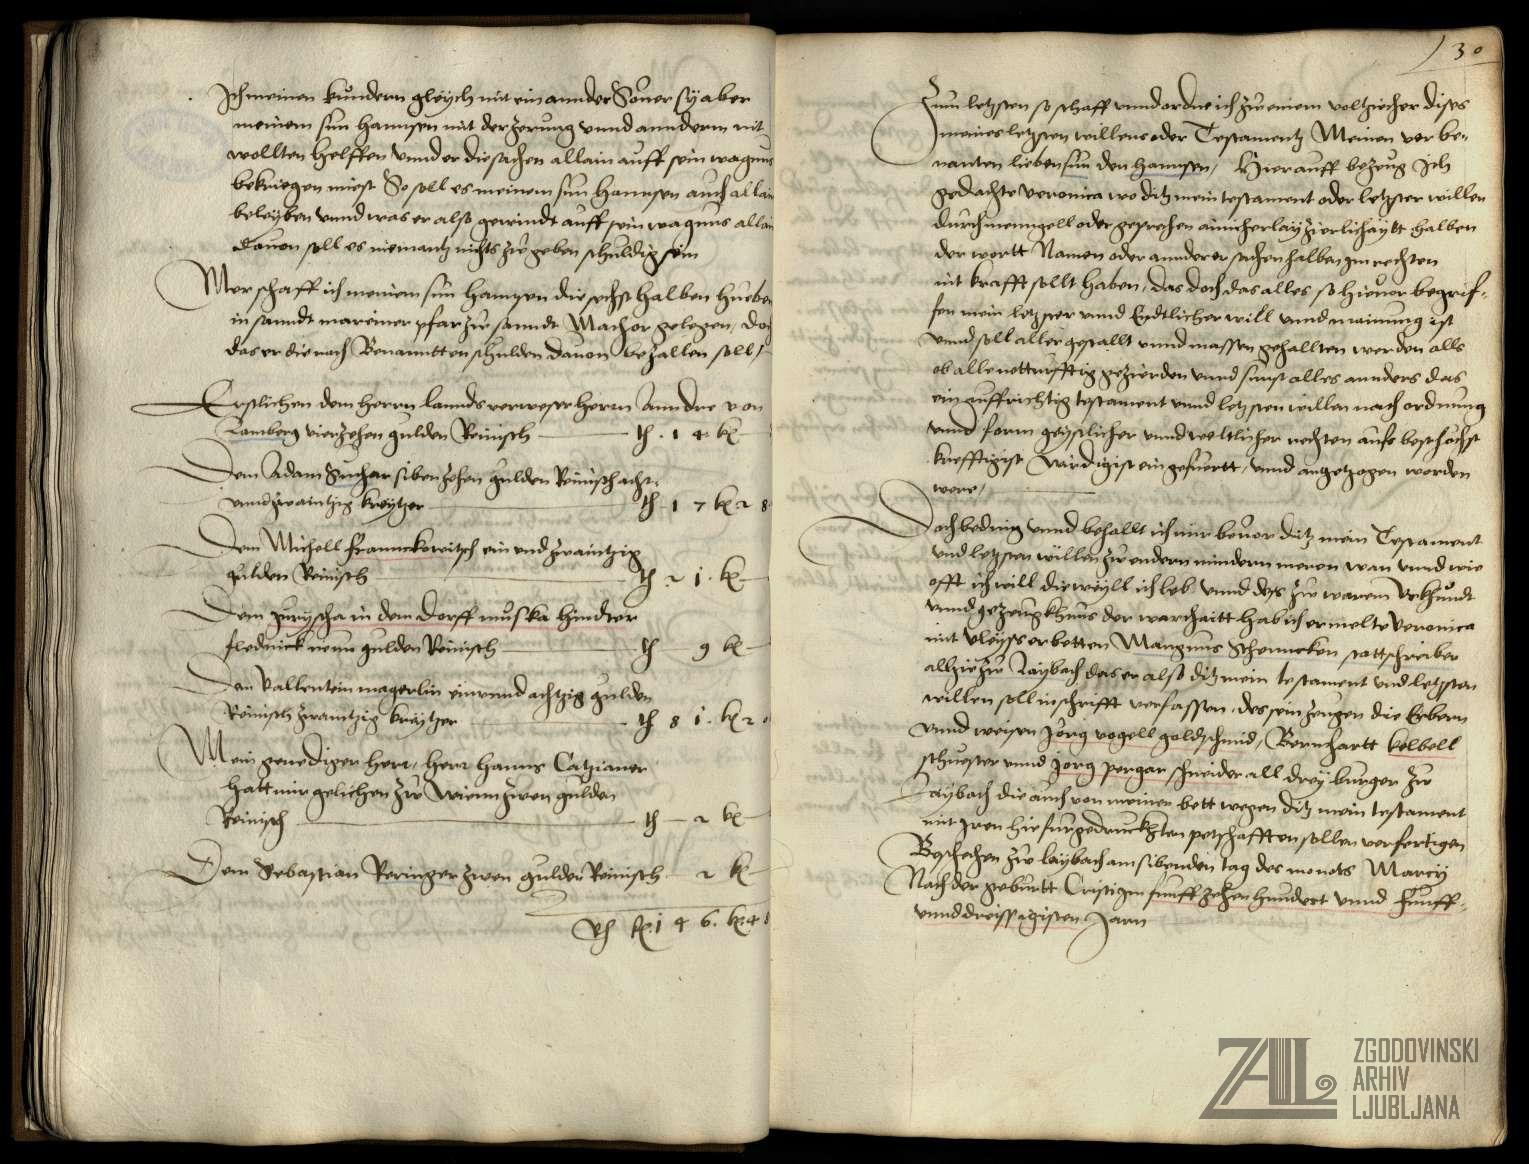 Ich meinen kundern gleych mit ein annder Souer sy aber
meinem sun Hannsen mit der Zerung vnnd anndern nit
wollten helffen vnnd er die sachen allain auff sein wagnus
bekriegen miest So soll es meinem sun Hannsen auch allain
beleyben vnnd was er also gewindt auff sein wagnus allain
dauon soll er niemantz nichts zw geben schuldig sein
Mer schaff ich meinem sun Hannsen die sechst halben hueben
in sanndt mareiner pfar zw sanndt Machor gelegen / doch
das er die nach Benanntten schulden dauon bezallen soll /
Erstlichen dem herrn lannds verweser herrn Anndre von
Lamberg vierzehen gulden Reinisch — fl . 1 4 . kr —
Dem Adam Suchar sibenzehen gulden Reinisch acht
vnnd zwaintzig kreytzer — fl 1 7 kr 2 8
Dem Michell Franckowitsch ein vnd zwaintzig
gulden Reinisch — fl 2 1 . kr —
Dem Juryscha in dem dorff muska hindter
flednick neun gulden Reinisch — fl 9 kr —
Dem Vallentein magerlin ain vnnd achtzig gulden
Reinisch zwaintzig kreytzer — fl 8 1 . kr 2
Mein genediger herr / herr Hanns Catzianer
hatt mir gelichen zw Wienn zwen gulden
Reinisch — fl — 2 kr —
Dem Sebastian Reringer zwen gulden Reinisch — 2 kr —
1 4 6 . kr 4 8
130
Zum letzsten so schaff vnnd ordne ich zw einem voltziecher dises
meines letzsten willens oder Testamentz Meinen vor be-
nanten lieben sun den Hannsen / Hierauff bezeug Ich
gedachte Veronica wo ditz mein testament oder letzster willen
durch menngell oder geprechen ainicherlay zierlichaytt halben
der wortt Namen oder annderer sachen halben Im rechten
nit krafft sollt haben / das doch das alles so hieuor begrif-
fen mein letzster vnnd Endtlicher will vnnd mainung ist
vnnd soll aller gestallt vnnd massen gehallten werden alls
ob alle notturfftig gezierden vnnd sunst alles annders das
ein auffrichtig testament vnnd letzsten willen nach ordnung
vnnd form geystlicher vnnd weltlicher rechten aufs best hochst
krefftigist wirdigist ein gefuertt / vnnd angetzogen worden
were /
Doch beding vnnd behallt ich mir beuor ditz mein Testament
vnd letzsten willen zw endern mindern meren wan vnnd wie
offt ich will die weyll ich leb vnnd des zw warem Vrkhundt
vnnd gezeugkhnus der warhaitt hab ich ermelte Veronica
mit vleyss erbetten Mangnus Schenncken stattschreiber
allhie zw Laybach das er also ditz mein testament vnd letzsten
willen soll in schrifft verfassen . des sein zeugen die Erbern
vnnd weisen Jorg vogell goldschmid / Bernhartt kelbell
schuester vnnd Jorg pergar schneider all drey burger zw
Laybach die auch von meiner bett wegen ditz mein testament
mit Iren hiefurgedruckhten petschafften sollen verfertigen
Beschechen zw laybach am sibenden tag des monets Marcy
Nach der geburtt Cristi Im funffzehenhundert vnnd Funff-
vnnd dreissigisten Jarn
ZAL
ZGODOVINSKI
ARHIV
LJUBLJANA